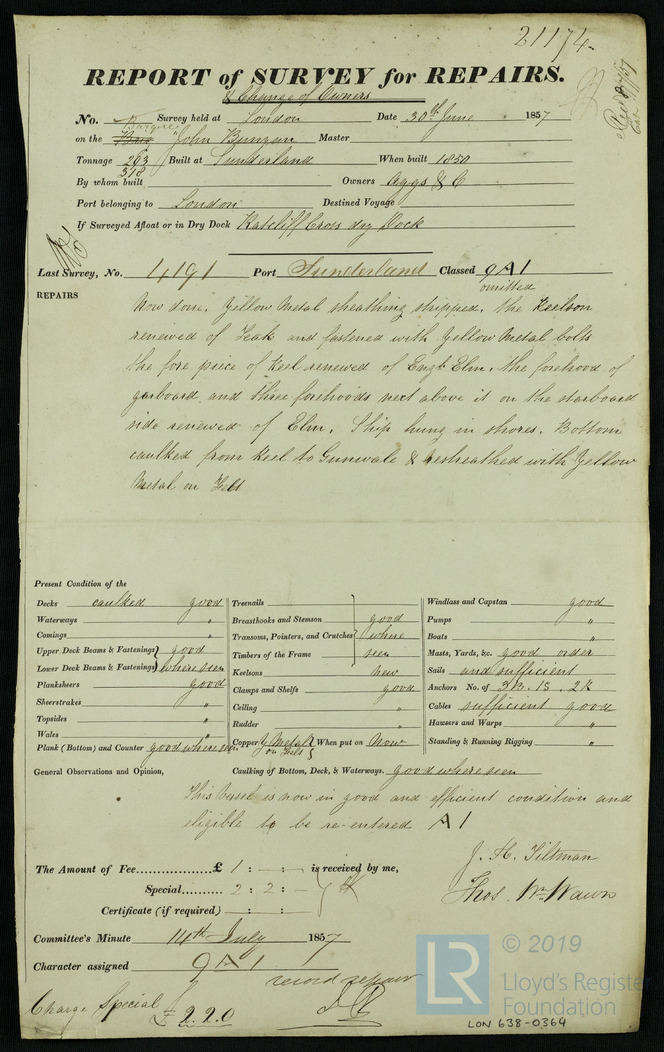 21174
REPORT of SURVEY for REPAIRS.
& Change of Owners
No. Survey held at London Date 30th June 1857
Barque
on the Brig "John Bunyan Master
Tonnage 263 Built at Sunderland When built 1850
318
By whom built Owners Aggs & C
Port belonging to London Destined Voyage
If Surveyed Afloat or in Dry Dock Ratcliff Cross dry Dock
Last Survey, No. 14191 Port Sunderland Classed 9A1
omitted
REPAIRS
Now done. Yellow Metal sheathing stripped, the Keelson
renewed of Teak and fastened with Yellow Metal bolts
the fore piece of Keel renewed of Engh Elm, the forehood of
garboard and three forehoods next above it on the starboard
side renewed of Elm, Ship hung in shores. Bottom
caulked from Keel to Gunwale & resheathed with Yellow
Metal on Felt
Present Condition of the
Decks caulked good
Waterways "
Comings "
Upper Deck Beams & Fastenings good
Lower Deck Beams & Fastenings where seen
Planksheers good
Sheerstrakes "
Topsides "
Wales "
Plank (Bottom) and Counter good where seen
Treenails
Breasthooks and Stemson good
Transoms, Pointers, and Crutches where
Timbers of the Frame seen
Keelsons new
Clamps and Shelfs good
Ceiling "
Rudder "
Copper Y Metal on Felt When put on Now
Windlass and Capstan good
Pumps "
Boats "
Masts, Yards, &c. good order
Sails and sufficient
Anchors No. of 3B. 1S. 2K
Cables sufficient good
Hawsers and Warps "
Standing & Running Rigging "
General Observations and Opinion, Caulking of Bottom, Deck, & Waterways. good where seen
This vessel is now in good and efficient condition and
eligible to be re-entered A1
J. H. Tiltman
Thos. Wm. Wawn
The Amount of Fee £ 1 : – : – is received by me,
Special 2 : 2 : –
Certificate (if required) – : – :
Committee's Minute 14th July 1857
Character assigned 9A1
record repair
Charge Special £ 2.2.0
LR © 2019
Lloyd's Register
Foundation
LON 638-0364